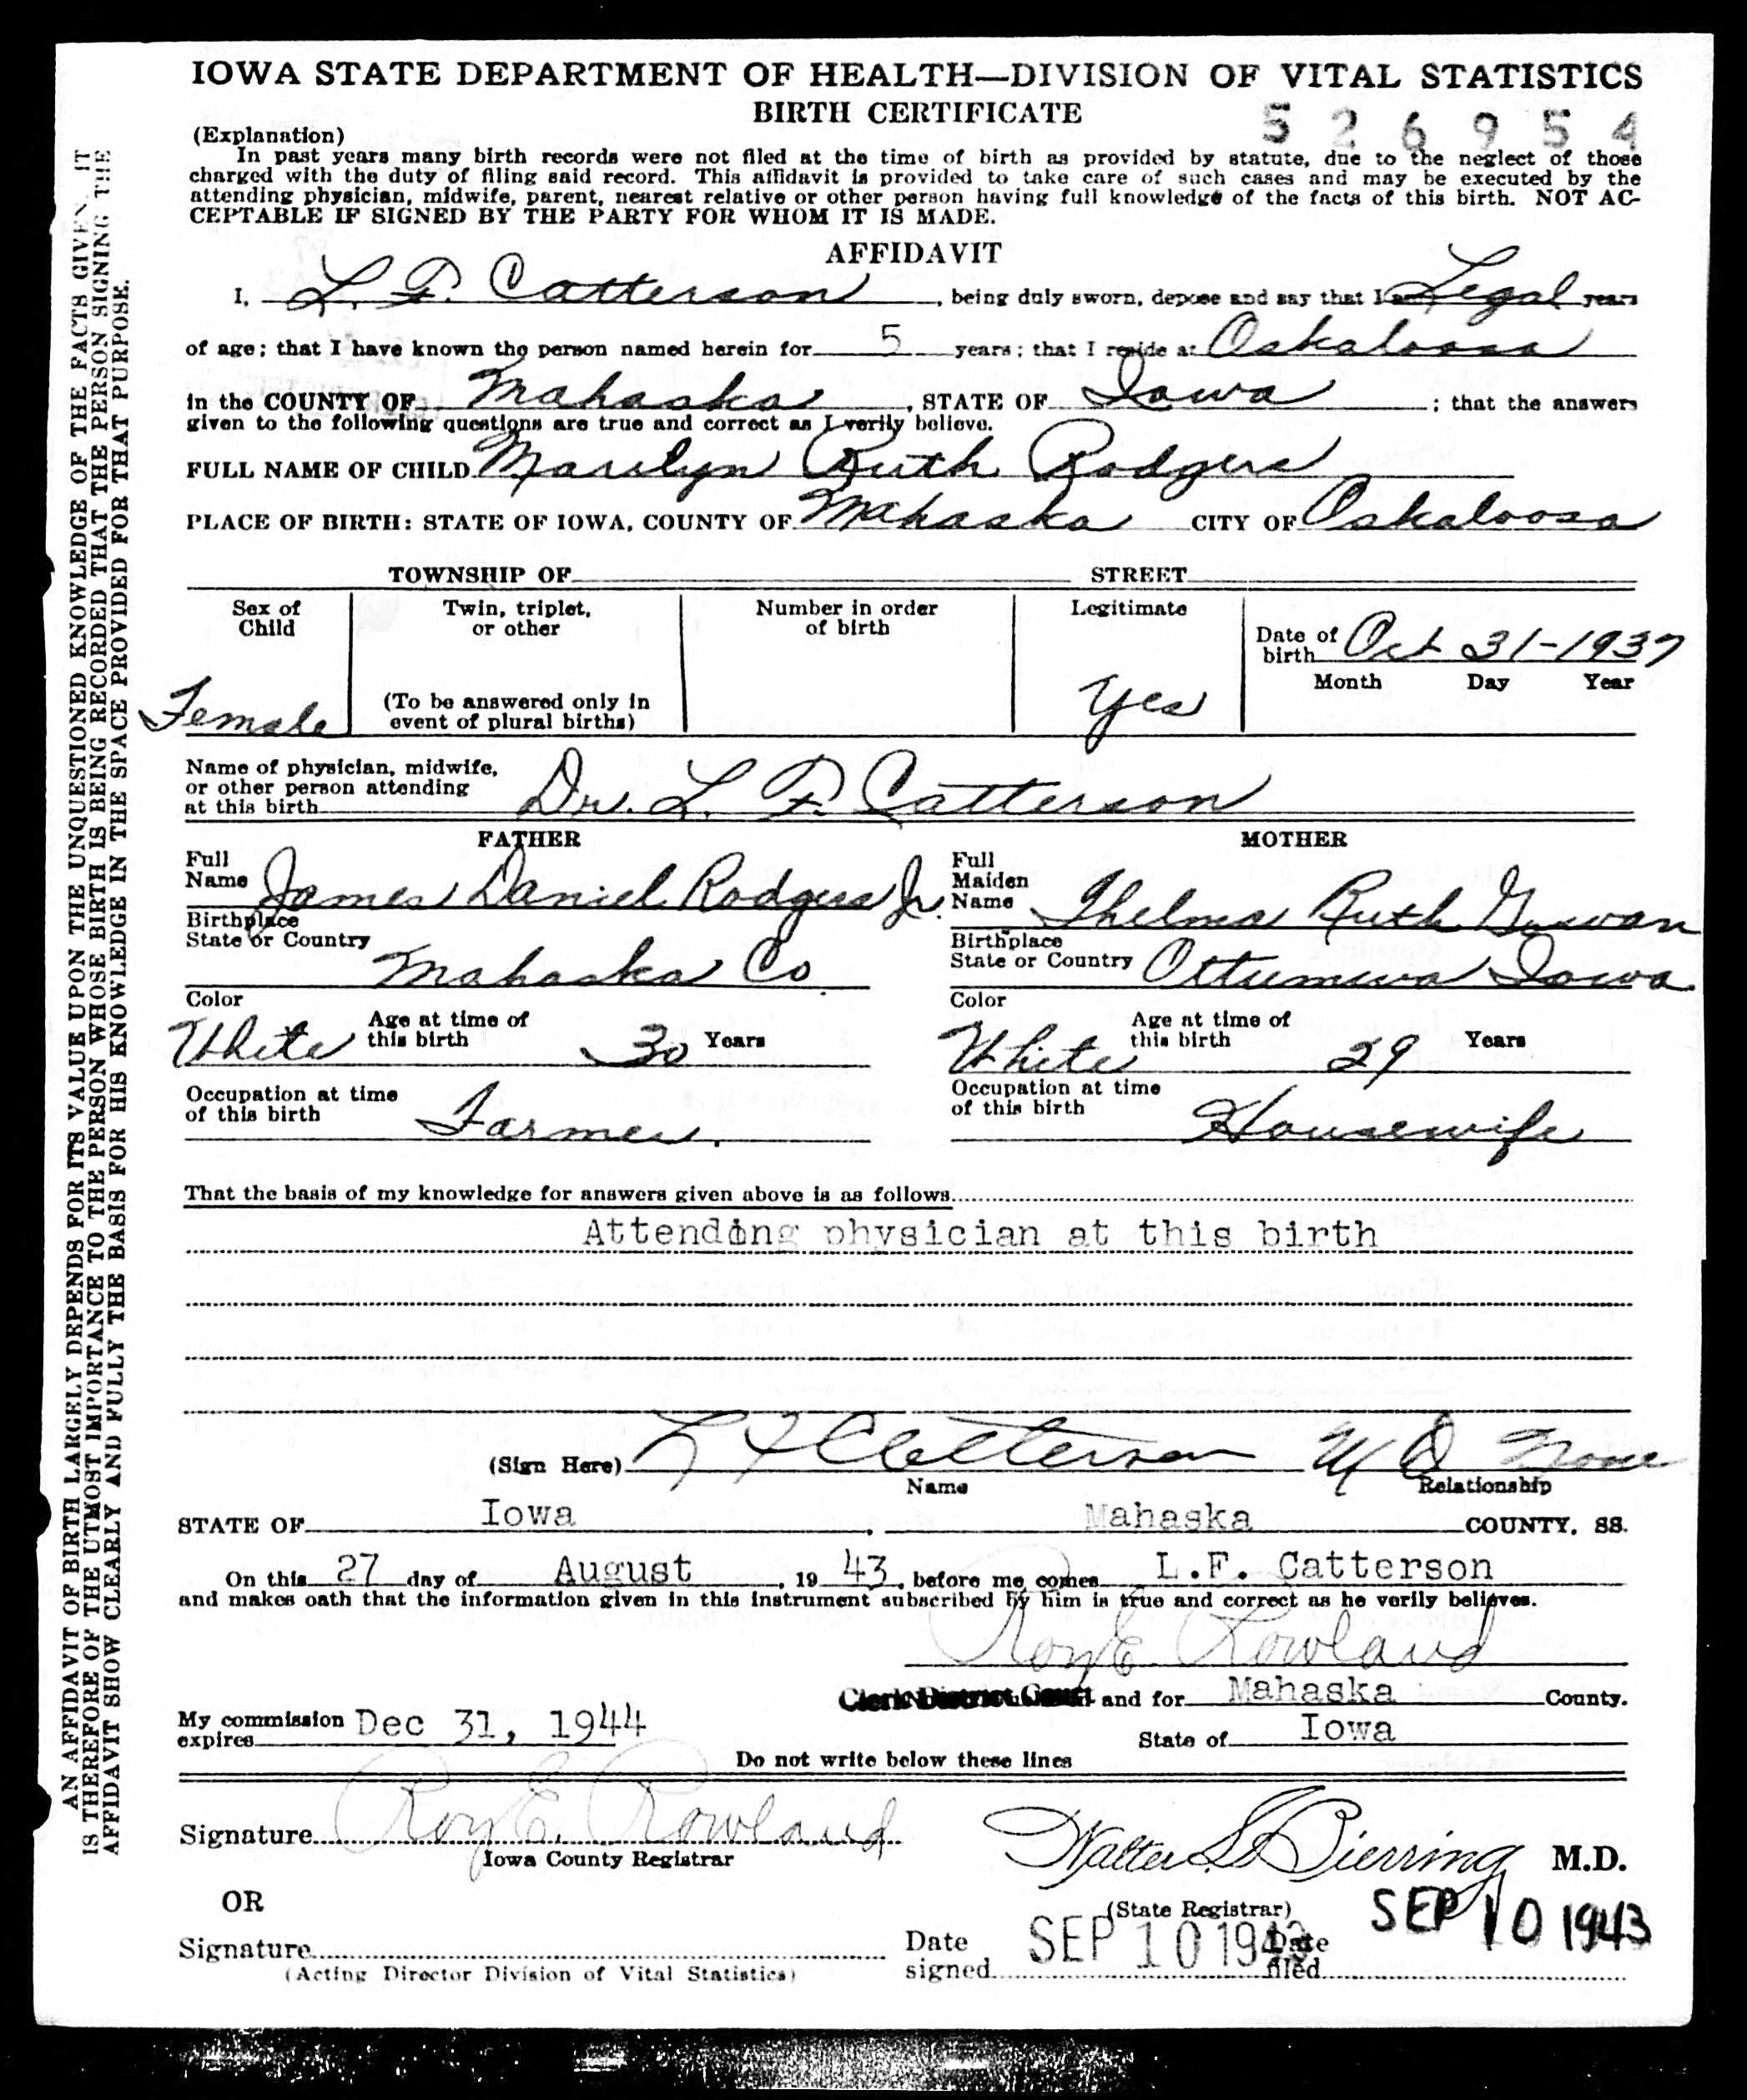 IOWA STATE DEPARTMENT OF HEALTH—DIVISION OF VITAL STATISTICS
BIRTH CERTIFICATE
526954
(Explanation)
In past years many birth records were not filed at the time of birth as provided by statute, due to the neglect of those
charged with the duty of filing said record. This affidavit is provided to take care of such cases and may be executed by the
attending physician, midwife, parent, nearest relative or other person having full knowledge of the facts of this birth. NOT AC-
CEPTABLE IF SIGNED BY THE PARTY FOR WHOM IT IS MADE.
AFFIDAVIT
I, L. F. Catterson, being duly sworn, depose and say that I am Legal years
of age; that I have known the person named herein for 5 years; that I reside at Oskaloosa
in the COUNTY OF Mahaska, STATE OF Iowa; that the answers
given to the following questions are true and correct as I verily believe.
FULL NAME OF CHILD Marilyn Ruth Rodgers
PLACE OF BIRTH: STATE OF IOWA, COUNTY OF Mahaska CITY OF Oskaloosa
TOWNSHIP OF STREET
Sex of Child Female
Twin, triplet, or other
(To be answered only in event of plural births)
Number in order of birth
Legitimate Yes
Date of birth Oct 31-1937
Month Day Year
Name of physician, midwife,
or other person attending
at this birth Dr. L. F. Catterson
FATHER
Full Name James Daniel Rodgers Jr.
Birthplace
State or Country Mahaska Co.
Color White Age at time of this birth 30 Years
Occupation at time of this birth Farmer.
MOTHER
Full Maiden Name Thelma Ruth
Birthplace
State or Country Ottumwa Iowa
Color White Age at time of this birth 29 Years
Occupation at time of this birth Housewife
That the basis of my knowledge for answers given above is as follows
Attending physician at this birth
(Sign Here) L F Catterson M D None
Name Relationship
STATE OF Iowa, Mahaska COUNTY, SS.
On this 27 day of August, 1943, before me comes L.F. Catterson
and makes oath that the information given in this instrument subscribed by him is true and correct as he verily believes.
Roy E. Rowland
Clerk District Court and for Mahaska County.
My commission expires Dec 31, 1944
State of Iowa
Do not write below these lines
Signature Roy E. Rowland
Iowa County Registrar
Walter L. Bierring M.D.
(State Registrar)
OR
Signature
(Acting Director Division of Vital Statistics)
Date signed SEP 10 1943
Date filed SEP 10 1943
AN AFFIDAVIT OF BIRTH LARGELY DEPENDS FOR ITS VALUE UPON THE UNQUESTIONED KNOWLEDGE OF THE FACTS GIVEN. IT
IS THEREFORE OF THE UTMOST IMPORTANCE TO THE PERSON WHOSE BIRTH IS BEING RECORDED THAT THE PERSON SIGNING THE
AFFIDAVIT SHOW CLEARLY AND FULLY THE BASIS FOR HIS KNOWLEDGE IN THE SPACE PROVIDED FOR THAT PURPOSE.